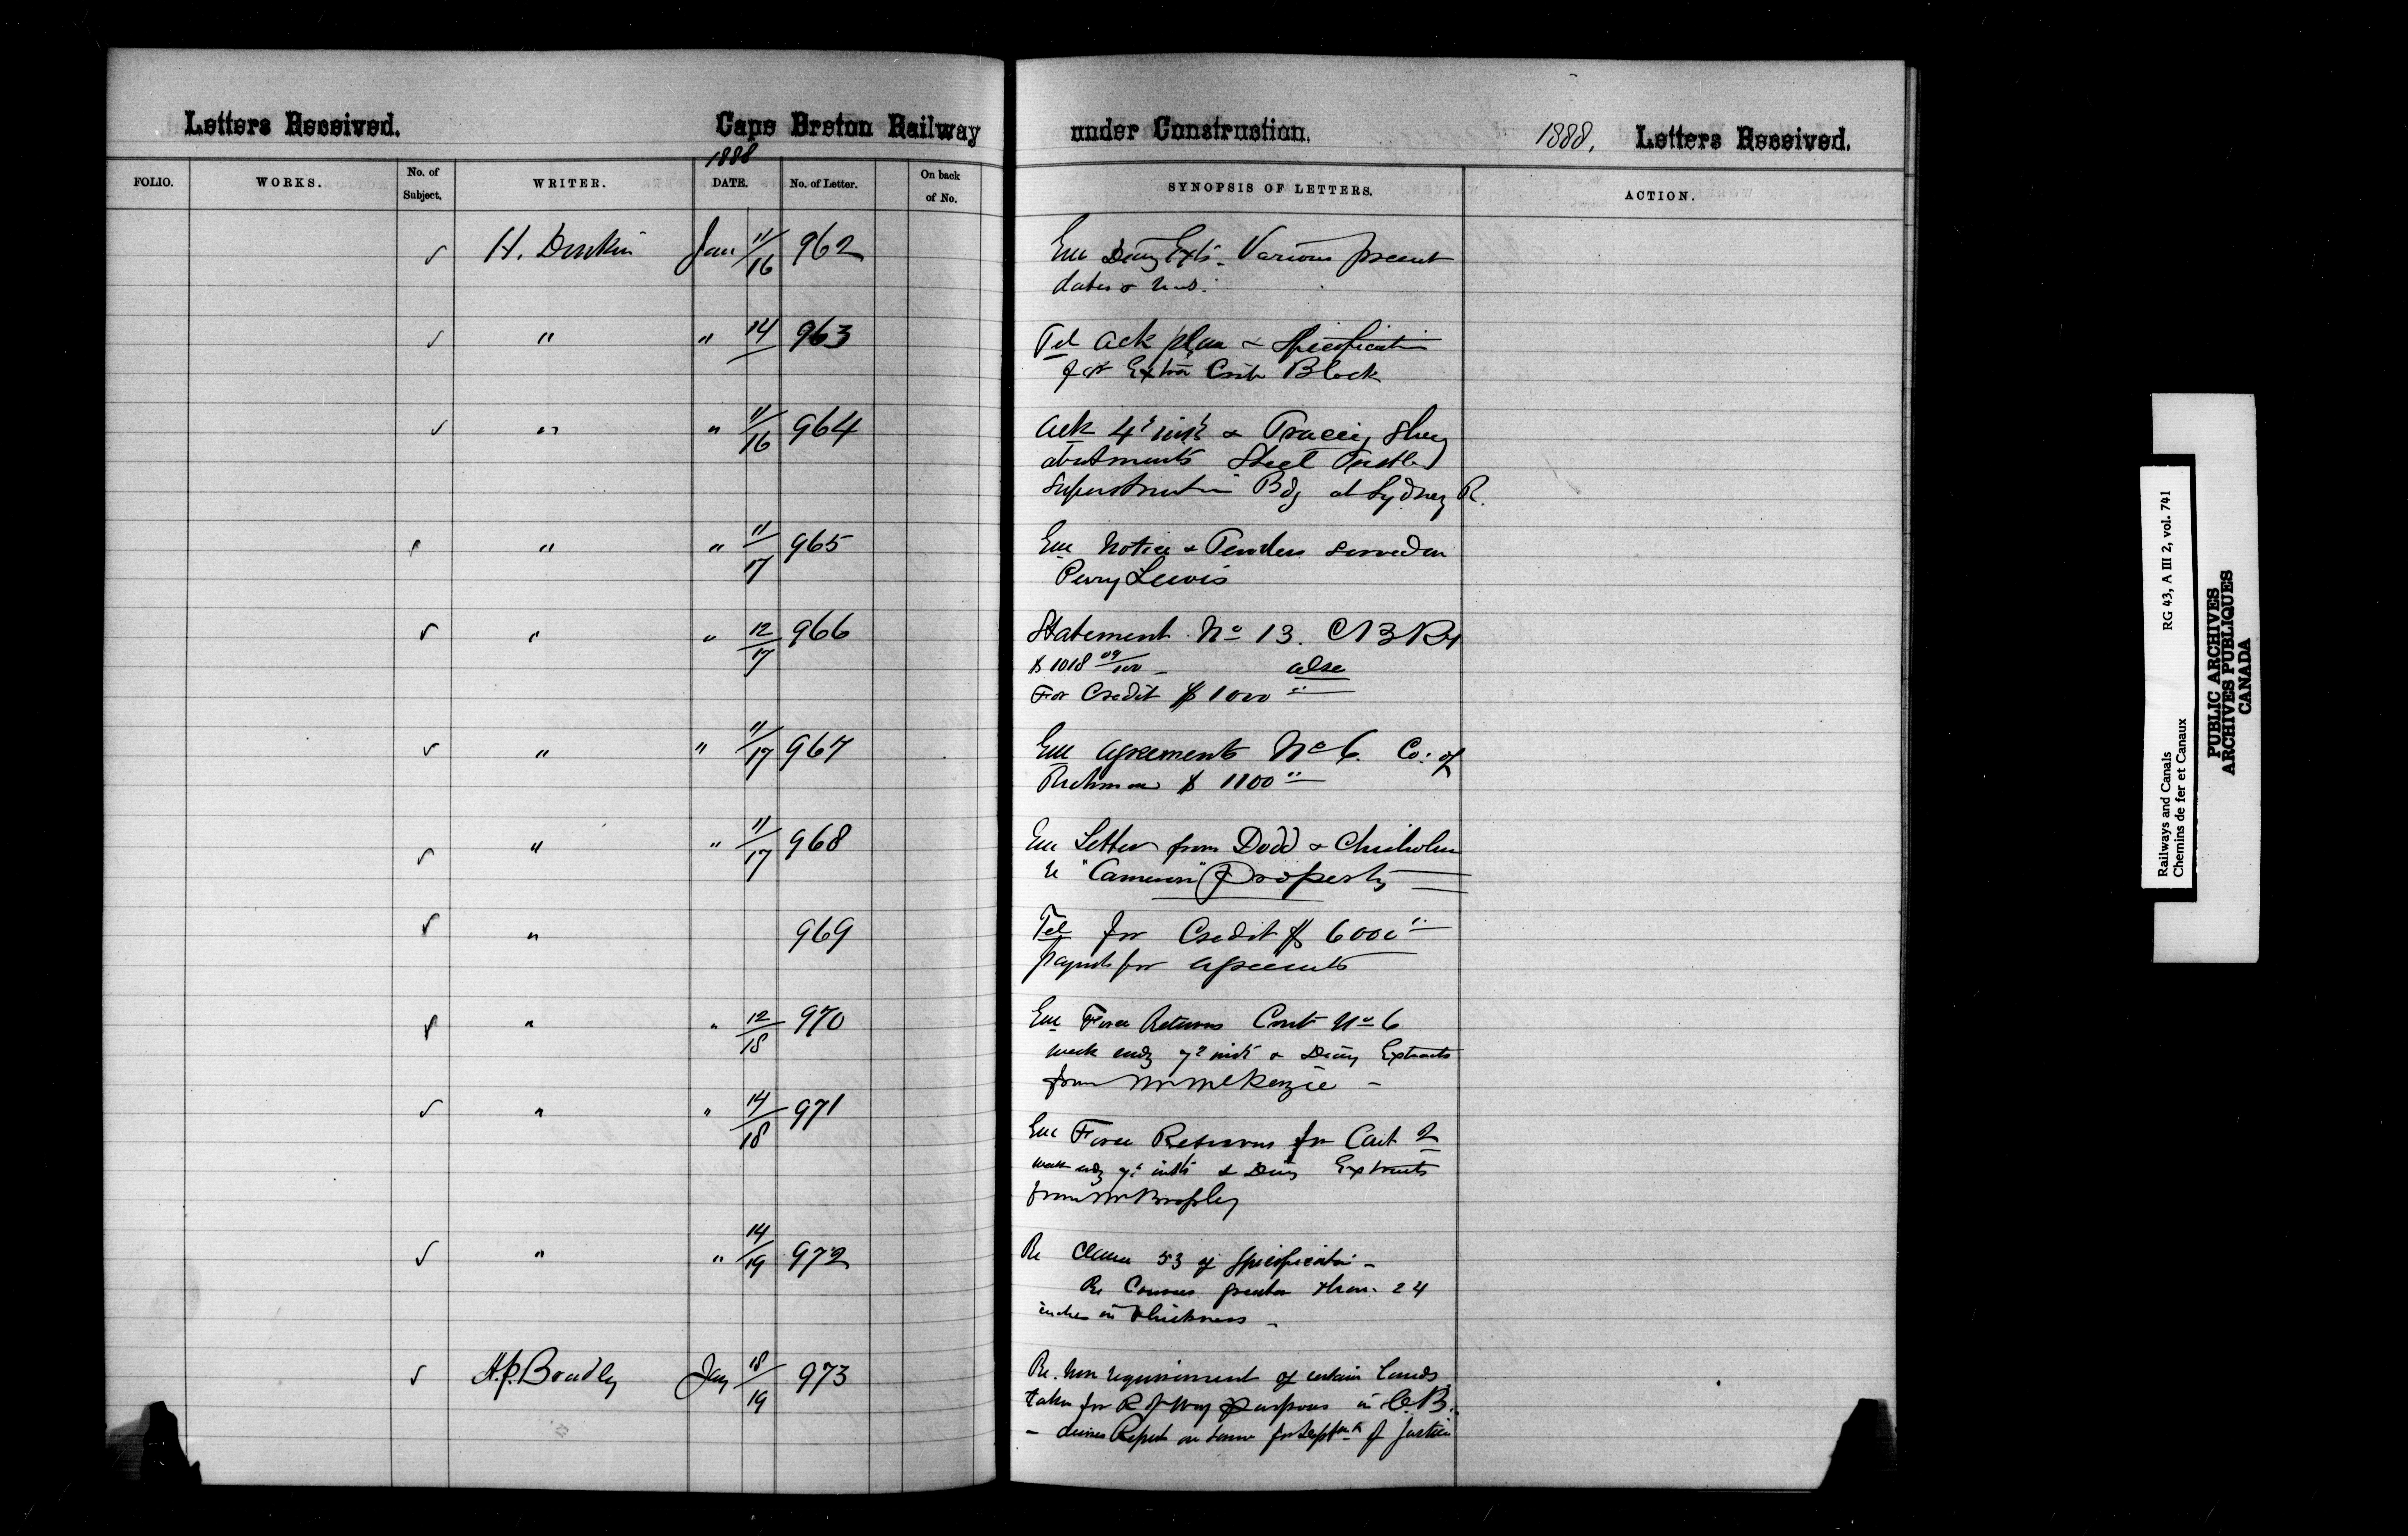 Letters Received. Cape Breton Railway under Construction. 1888, Letters Received.
1888
FOLIO. WORKS. No. of Subject. WRITER. DATE. No. of Letter. On back of No. SYNOPSIS OF LETTERS. ACTION.
√ H. Donkin Jan 11/16 962 Enc Diary Exts. Various present
dates & Nos.
√ " " 14 963 Tel Ack plan & Specification
for Extra Crib Block
√ " " 11/16 964 Ack 4th inst & Tracing Shewg
abutments Steel Trestle
Superstructure Bdg at Sydney R.
√ " " 11/17 965 Enc Notice & Tenders served on
Perry Lewis
√ " " 12/17 966 Statement No 13. CBRy
$1018 09/100 – also
For Credit $1000 "
√ " " 11/17 967 Enc Agreements No 6. Co: of
Richmond $1100 "
√ " " 11/17 968 Enc Letter from Dodd & Chisholm
re "Cameron" Property
√ " 969 Tel for Credit $6000 "
payments for agreements
√ " " 12/18 970 Enc Force Returns Cont No 6
week endg 7th inst & Diary Extracts
from Mr McKenzie –
√ " " 14/18 971 Enc Force Returns for Cont 2
week endg 7th inst & Diary Extracts
from Mr Brophy
√ " " 14/19 972 Re Clause 53 of Specification –
Re Courses greater than 24
inches in thickness –
√ A.P. Bradley Jany 18/19 973 Re. Non requirement of certain Lands
taken for R of Way purposes in C.B.
– desires Report on same for Deptmt of Justice
Railways and Canals RG 43, A III 2, vol. 741
Chemins de fer et Canaux
PUBLIC ARCHIVES
ARCHIVES PUBLIQUES
CANADA